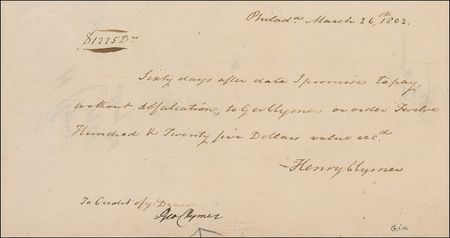 Philad.a March 26.th 1802.
$1225 Drs
Sixty days after date I promise to pay
without defalcation, to Geo Clymer or order Twelve
Hundred & Twenty five Dollars value rec.d
Henry Clymer
To Credit of y.e
Geo Clymer